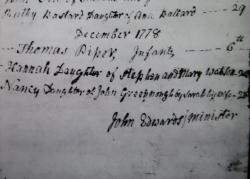 Ruthy Bastard Daughter of Ann Ballard — 29
December 1778
Thomas Piper, Infant — 6th
Hannah Daughter of Stephen and Mary
Nancy Daughter of John Greenough by Sarah his wife
John Edwards Minister